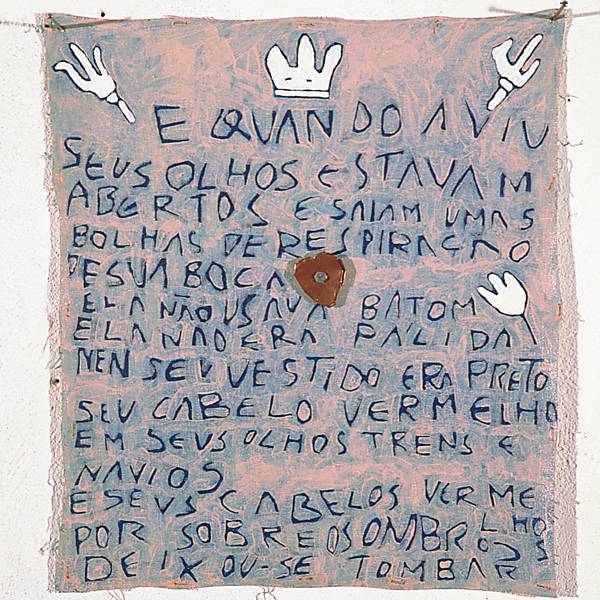 E QUANDO A VIU
SEUS OLHOS ESTAVAM
ABERTOS E SAIAM UMAS
BOLHAS DE RESPIRAÇAO
DE SUA BOCA
ELA NÃO USAVA BATOM
E ELA NAO ERA PÁLIDA
NEN SEU VESTIDO ERA PRETO
SEU CABELO VERMELHO
EM SEUS OLHOS TRENS E
NAVIOS
E SEUS CABELOS VERMELHOS
POR SOBRE OS OMBROS
DEIXOU-SE TOMBAR